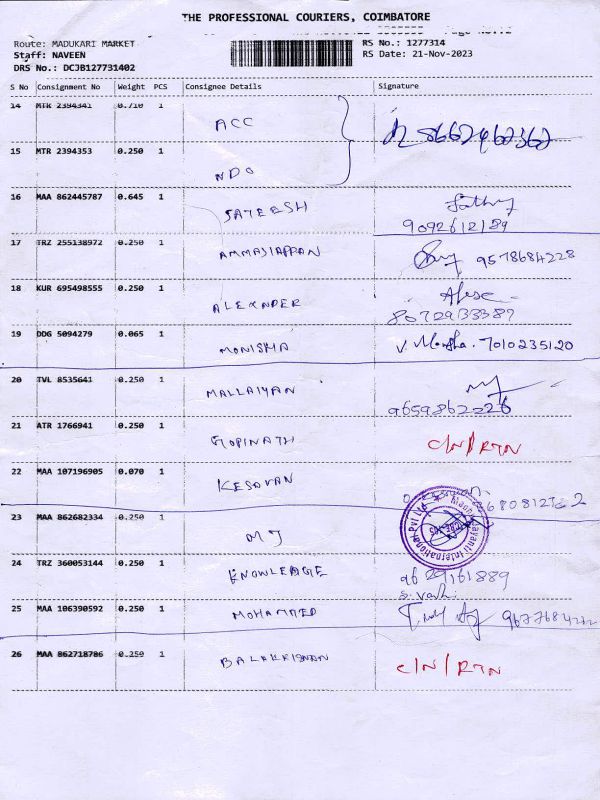 THE PROFESSIONAL COURIERS, COIMBATORE
Route: MADUKARI MARKET
RS No.: 1277314
Staff: NAVEEN
RS Date: 21-Nov-2023
DRS No.: DCJB127731402
S No Consignment No Weight PCS Consignee Details Signature
14 MTR 2394341 0.710 1 ACC
15 MTR 2394353 0.250 1 NDO
16 MAA 862445787 0.645 1 SATEESH
9092612189
17 TRZ 255138972 0.250 1 AMMASIAPPAN 9578684228
18 KUR 695498555 0.250 1 ALEXNDER
8072933387
19 DDG 5094279 0.065 1 MONISHA V. Monisha. 7010235120
20 TVL 8535641 0.250 1 MALLAIYAN
9659862226
21 ATR 1766941 0.250 1 GOPINATH C/N/RTN
22 MAA 107196905 0.070 1 KESAVAN
23 MAA 862682334 0.250 1 MJ
24 TRZ 360053144 0.250 1 KNOWLEDGE 9629161889
25 MAA 106390592 0.250 1 MOHAMMED
26 MAA 862718786 0.250 1 BALAKRISHNAN C/N/RTN